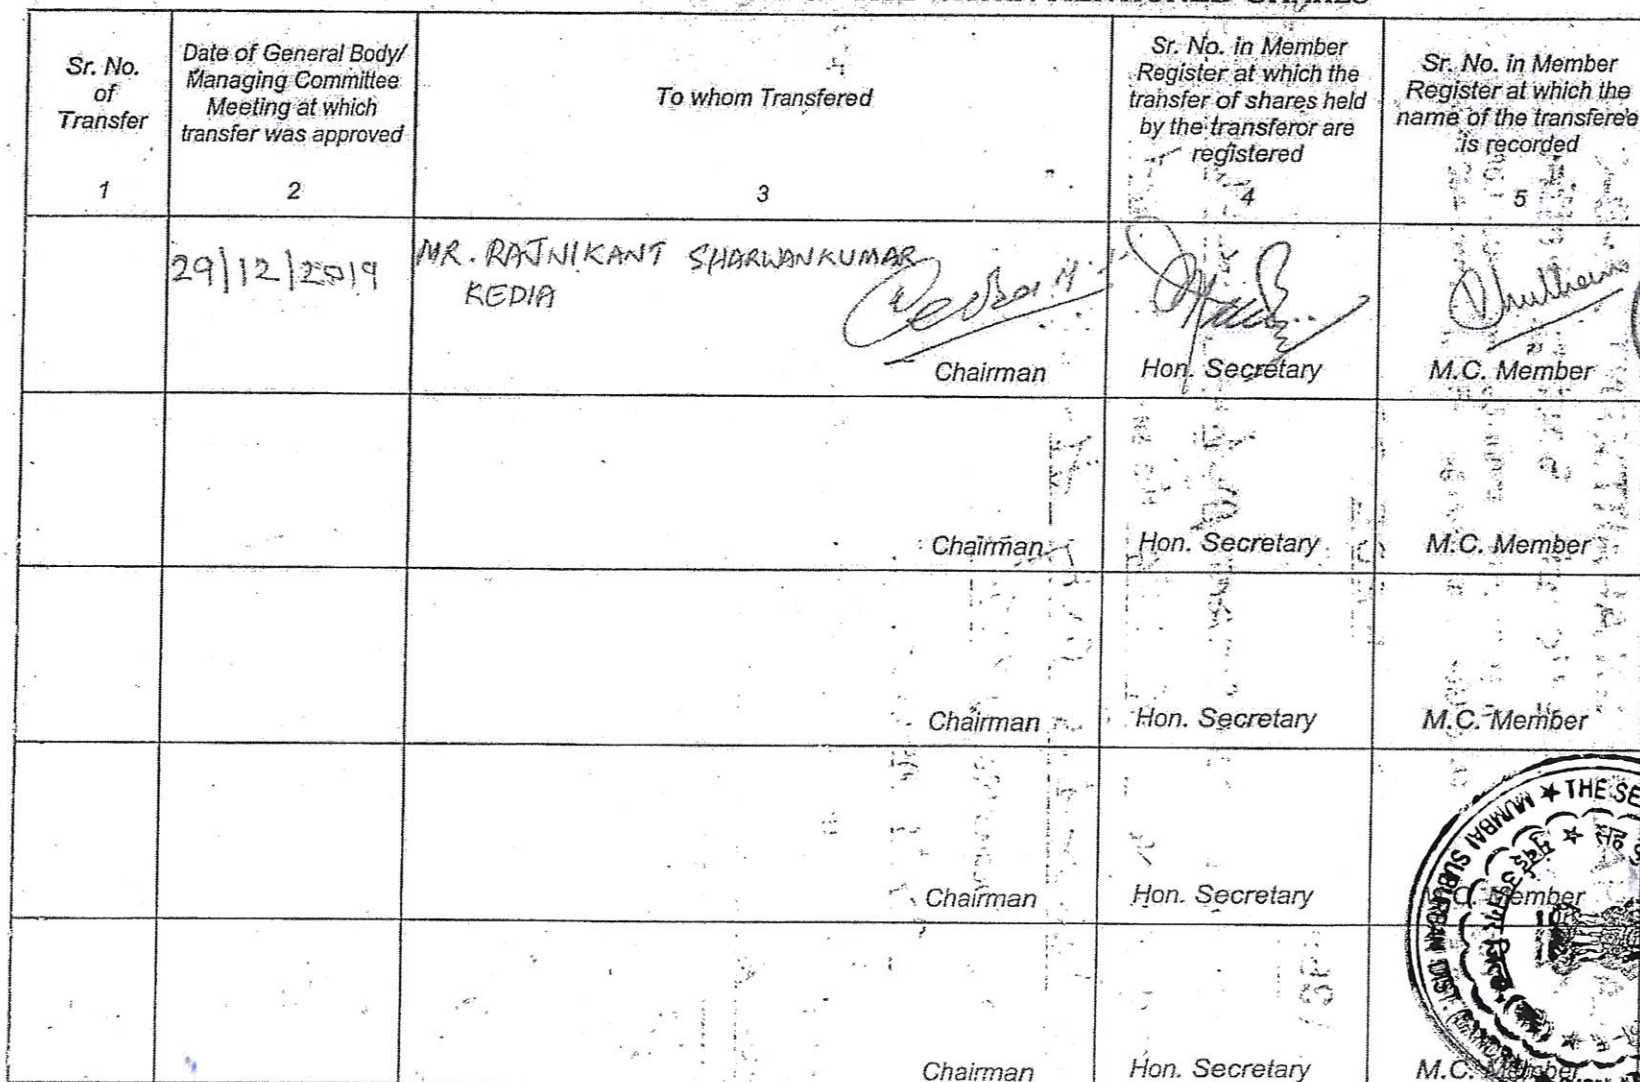 Sr. No.
of
Transfer
1
Date of General Body/
Managing Committee
Meeting at which
transfer was approved
2
To whom Transfered
3
Sr. No. in Member
Register at which the
transfer of shares held
by the transferor are
registered
4
Sr. No. in Member
Register at which the
name of the transferee
is recorded
5
29/12/2019
MR. RAJNIKANT SHARWANKUMAR
KEDIA
Chairman
Hon. Secretary
M.C. Member
Chairman
Hon. Secretary
M.C. Member
Chairman
Hon. Secretary
M.C. Member
Chairman
Hon. Secretary
M.C. Member
Chairman
Hon. Secretary
M.C. Member
MUMBAI SUBURBAN DIST. ★ THE SE